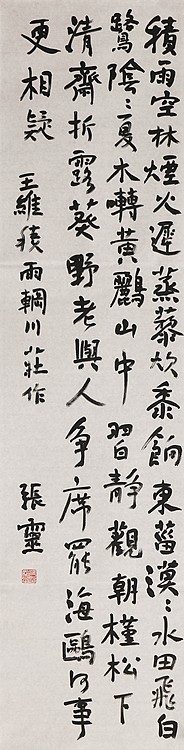 積雨空林煙火遲蒸藜炊黍餉東菑漠〻水田飛白
鷺陰〻夏木囀黃鸝山中習靜觀朝槿松下
清齋折露葵野老與人争席罷海鷗何事
更相疑 王維積雨輞川莊作 張靈